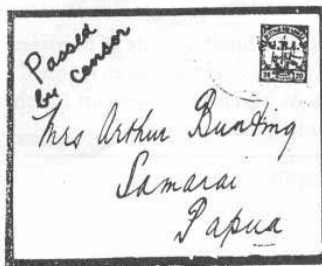 Passed
by Censor
G.R.I.
Mrs Arthur Bunting
Samarai
Papua